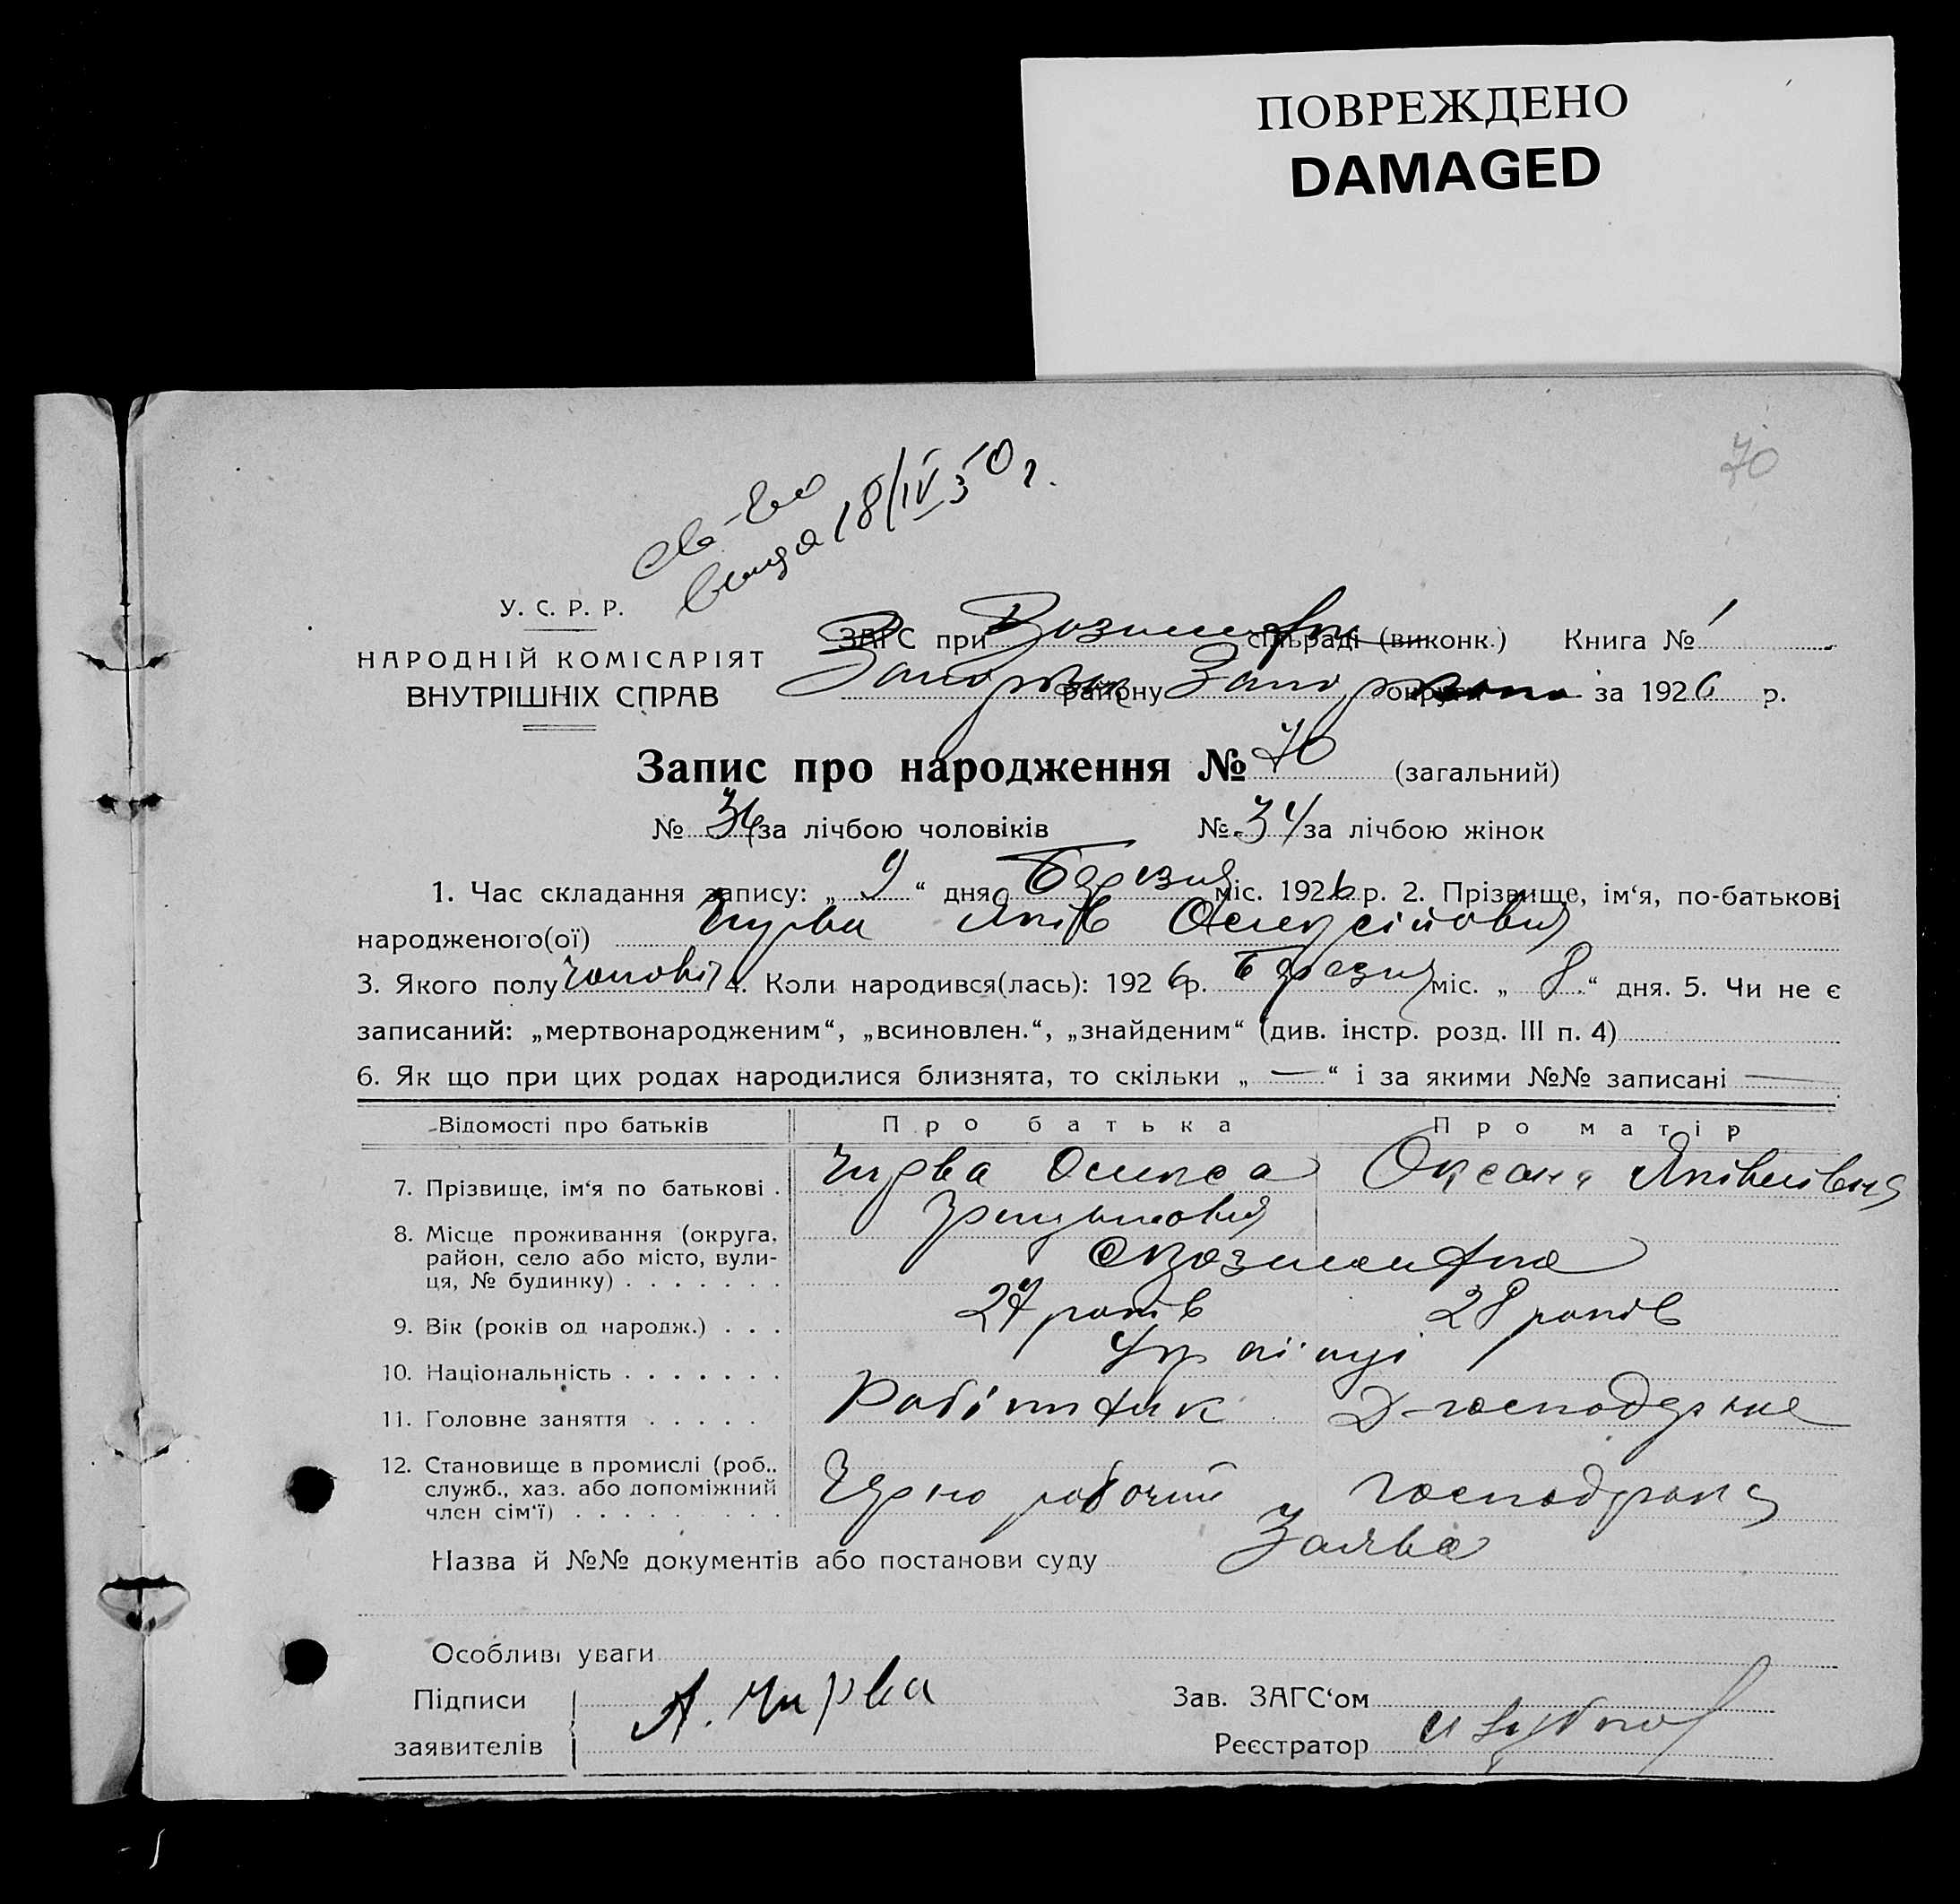 ПОВРЕЖДЕНО
DAMAGED
70
св-во
18/IV 50 г.
У. С. Р. Р.
НАРОДНІЙ КОМІСАРІЯТ
ВНУТРІШНІХ СПРАВ
ЗАГС при сільраді (виконк.) Книга № 1
району округи за 1926 р.
Запис про народження № 70 (загальний)
№ 36 за лічбою чоловіків № 34 за лічбою жінок
1. Час складання запису: „ 9 “ дня Березня міс. 1926 р. 2. Прізвище, ім‘я, по-батькові
народженого(ої) Чирва Яків Олексійович
3. Якого полу чоловіч 4. Коли народився(лась): 1926 р. Березня міс. „ 8 “ дня. 5. Чи не є
записаний: „мертвонародженим“, „всиновлен.“, „знайденим“ (див. інстр. розд. III п. 4)
6. Як що при цих родах народилися близнята, то скільки „ — “ і за якими №№ записані —
Відомості про батьків Про батька Про матір
7. Прізвище, ім‘я по батькові . Чирва Олекса Оксана Яківлівна
8. Місце проживання (округа,
район, село або місто, вули-
ця, № будинку) . . . . . . .
9. Вік (років од народж.) . . . 27 років 28 років
10. Національність . . . . . . . Українці
11. Головне заняття . . . . . Робітник Д-господарка
12. Становище в промислі (роб.,
служб., хаз. або допоміжний
член сім‘ї) . . . . . . . . . Чорно робочий господарка
Назва й №№ документів або постанови суду Заява
Особливі уваги
Підписи А. Чирва Зав. ЗАГС‘ом
заявителів Реєстратор